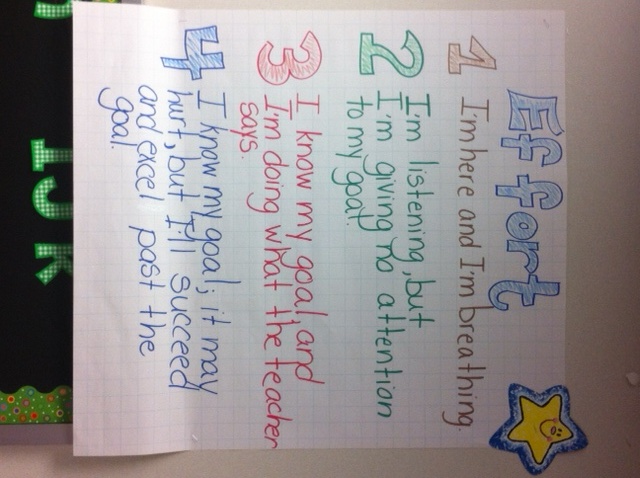 Effort
1 I'm here and I'm breathing.
2 I'm listening, but
I'm giving no attention
to my goal.
3 I know my goal, and
I'm doing what the teacher
says.
4 I know my goal; it may
hurt, but I'll succeed
and excel past the
goal.
IJK